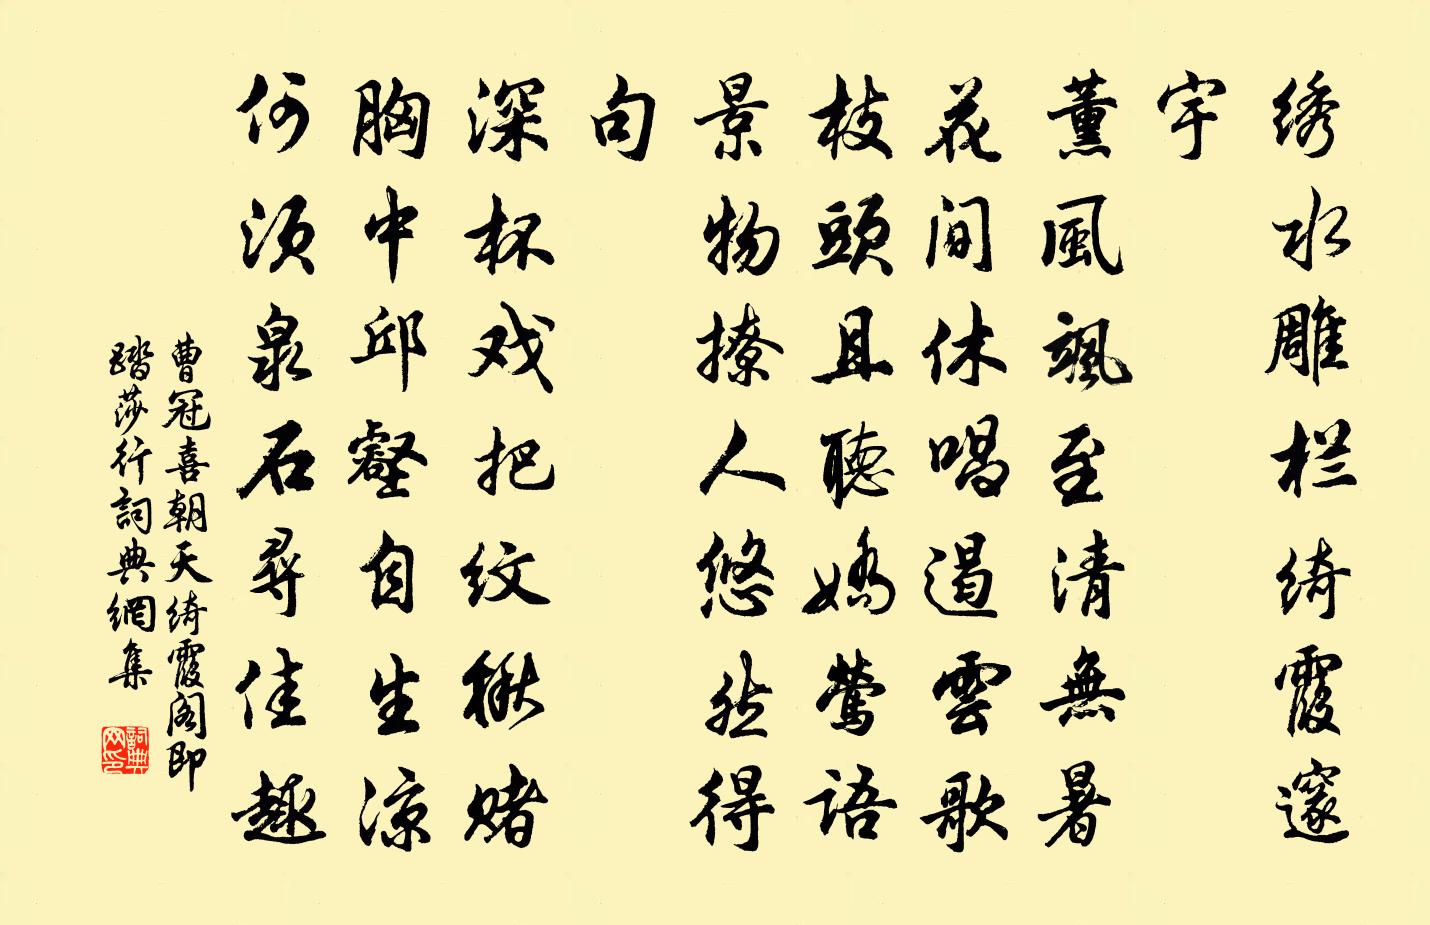 绣水雕栏绮霞邃
宇
薰風颯至清無暑
花间休唱遏雲歌
枝頭且聽嬌莺语
景物撩人悠然得
句
深杯戏把纹楸赌
胸中邱壑自生凉
何须泉石寻佳趣
曹冠喜朝天绮霞阁即
踏莎行詞典網集
詞典
网印